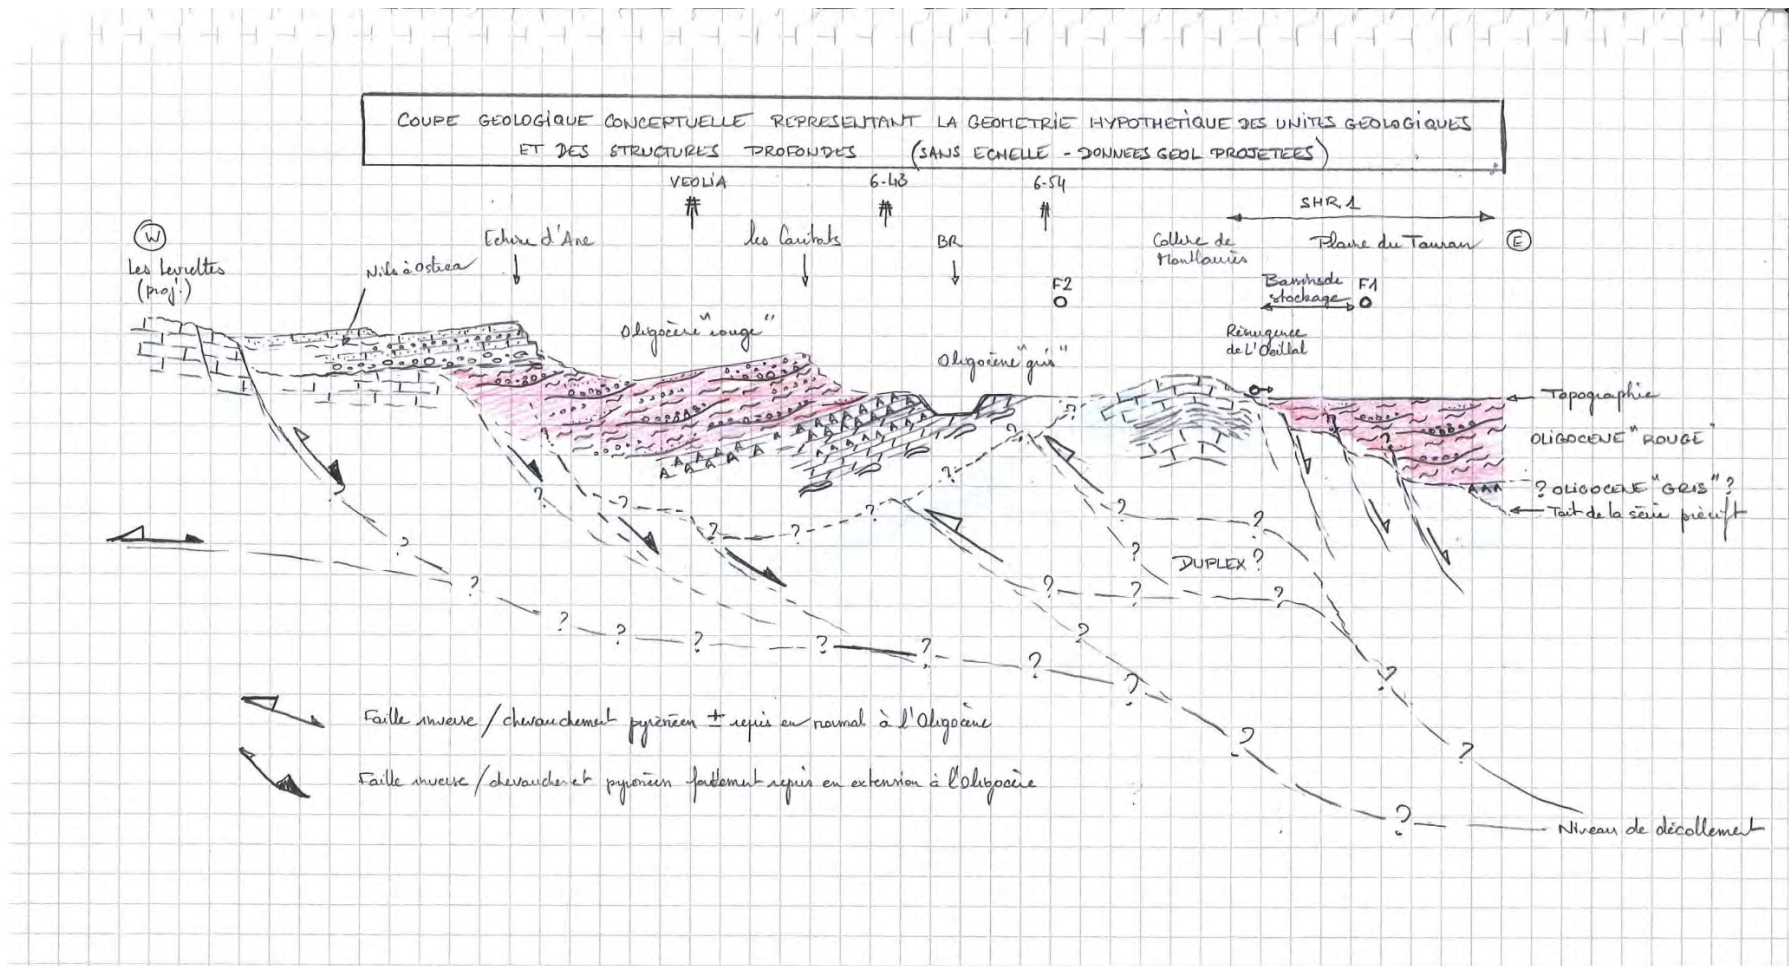 COUPE GEOLOGIQUE CONCEPTUELLE REPRESENTANT LA GEOMETRIE HYPOTHETIQUE DES UNITES GEOLOGIQUES
ET DES STRUCTURES PROFONDES (SANS ECHELLE - DONNEES GEOL PROJETEES)
VEOLIA
6-43
6-54
SHR.1
W
Echine d'Ane
les Caritats
BR
Colline de
Montlaurès
Plaine du Tauran
E
Les Levrettes
(proj.)
Nids à Ostrea
F2
Bassins de
stockage
F1
Oligocène "rouge"
Résurgence
de L'Oeillal
Oligocène "gris"
Topographie
OLIGOCENE "ROUGE"
? OLIGOCENE "GRIS" ?
Toit de la série prérift
DUPLEX ?
Faille inverse / chevauchement pyrénéen ± repris en normal à l'Oligocène
Faille inverse / chevauchement pyrénéen fortement repris en extension à l'Oligocène
Niveau de décollement